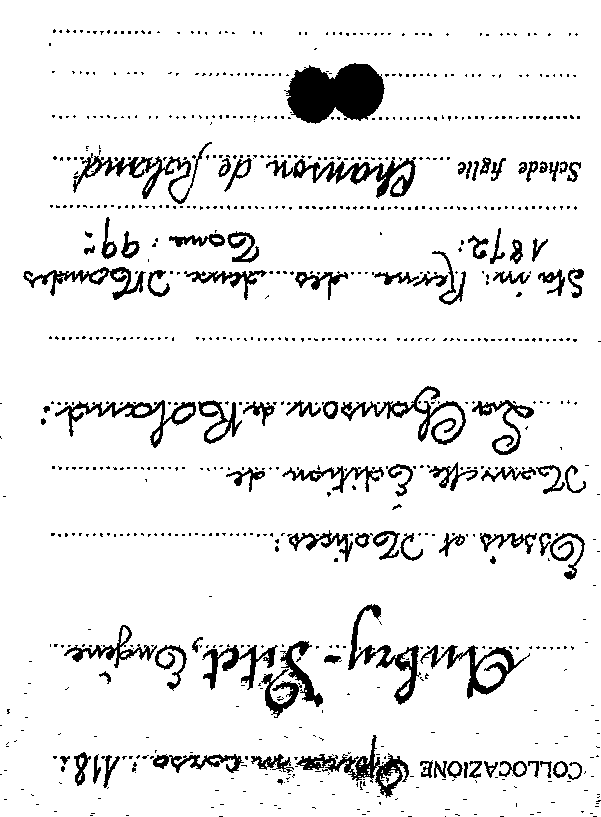 COLLOCAZIONE Opere in corso: 118:
Aubry-Vitet, Eugène
Essais et Notices:
Nouvelle Édition de
La Chanson de Roland:
Sta in: Revue des deux Mondes
1872: Tome: 99:
Schede figlie Chanson de Roland